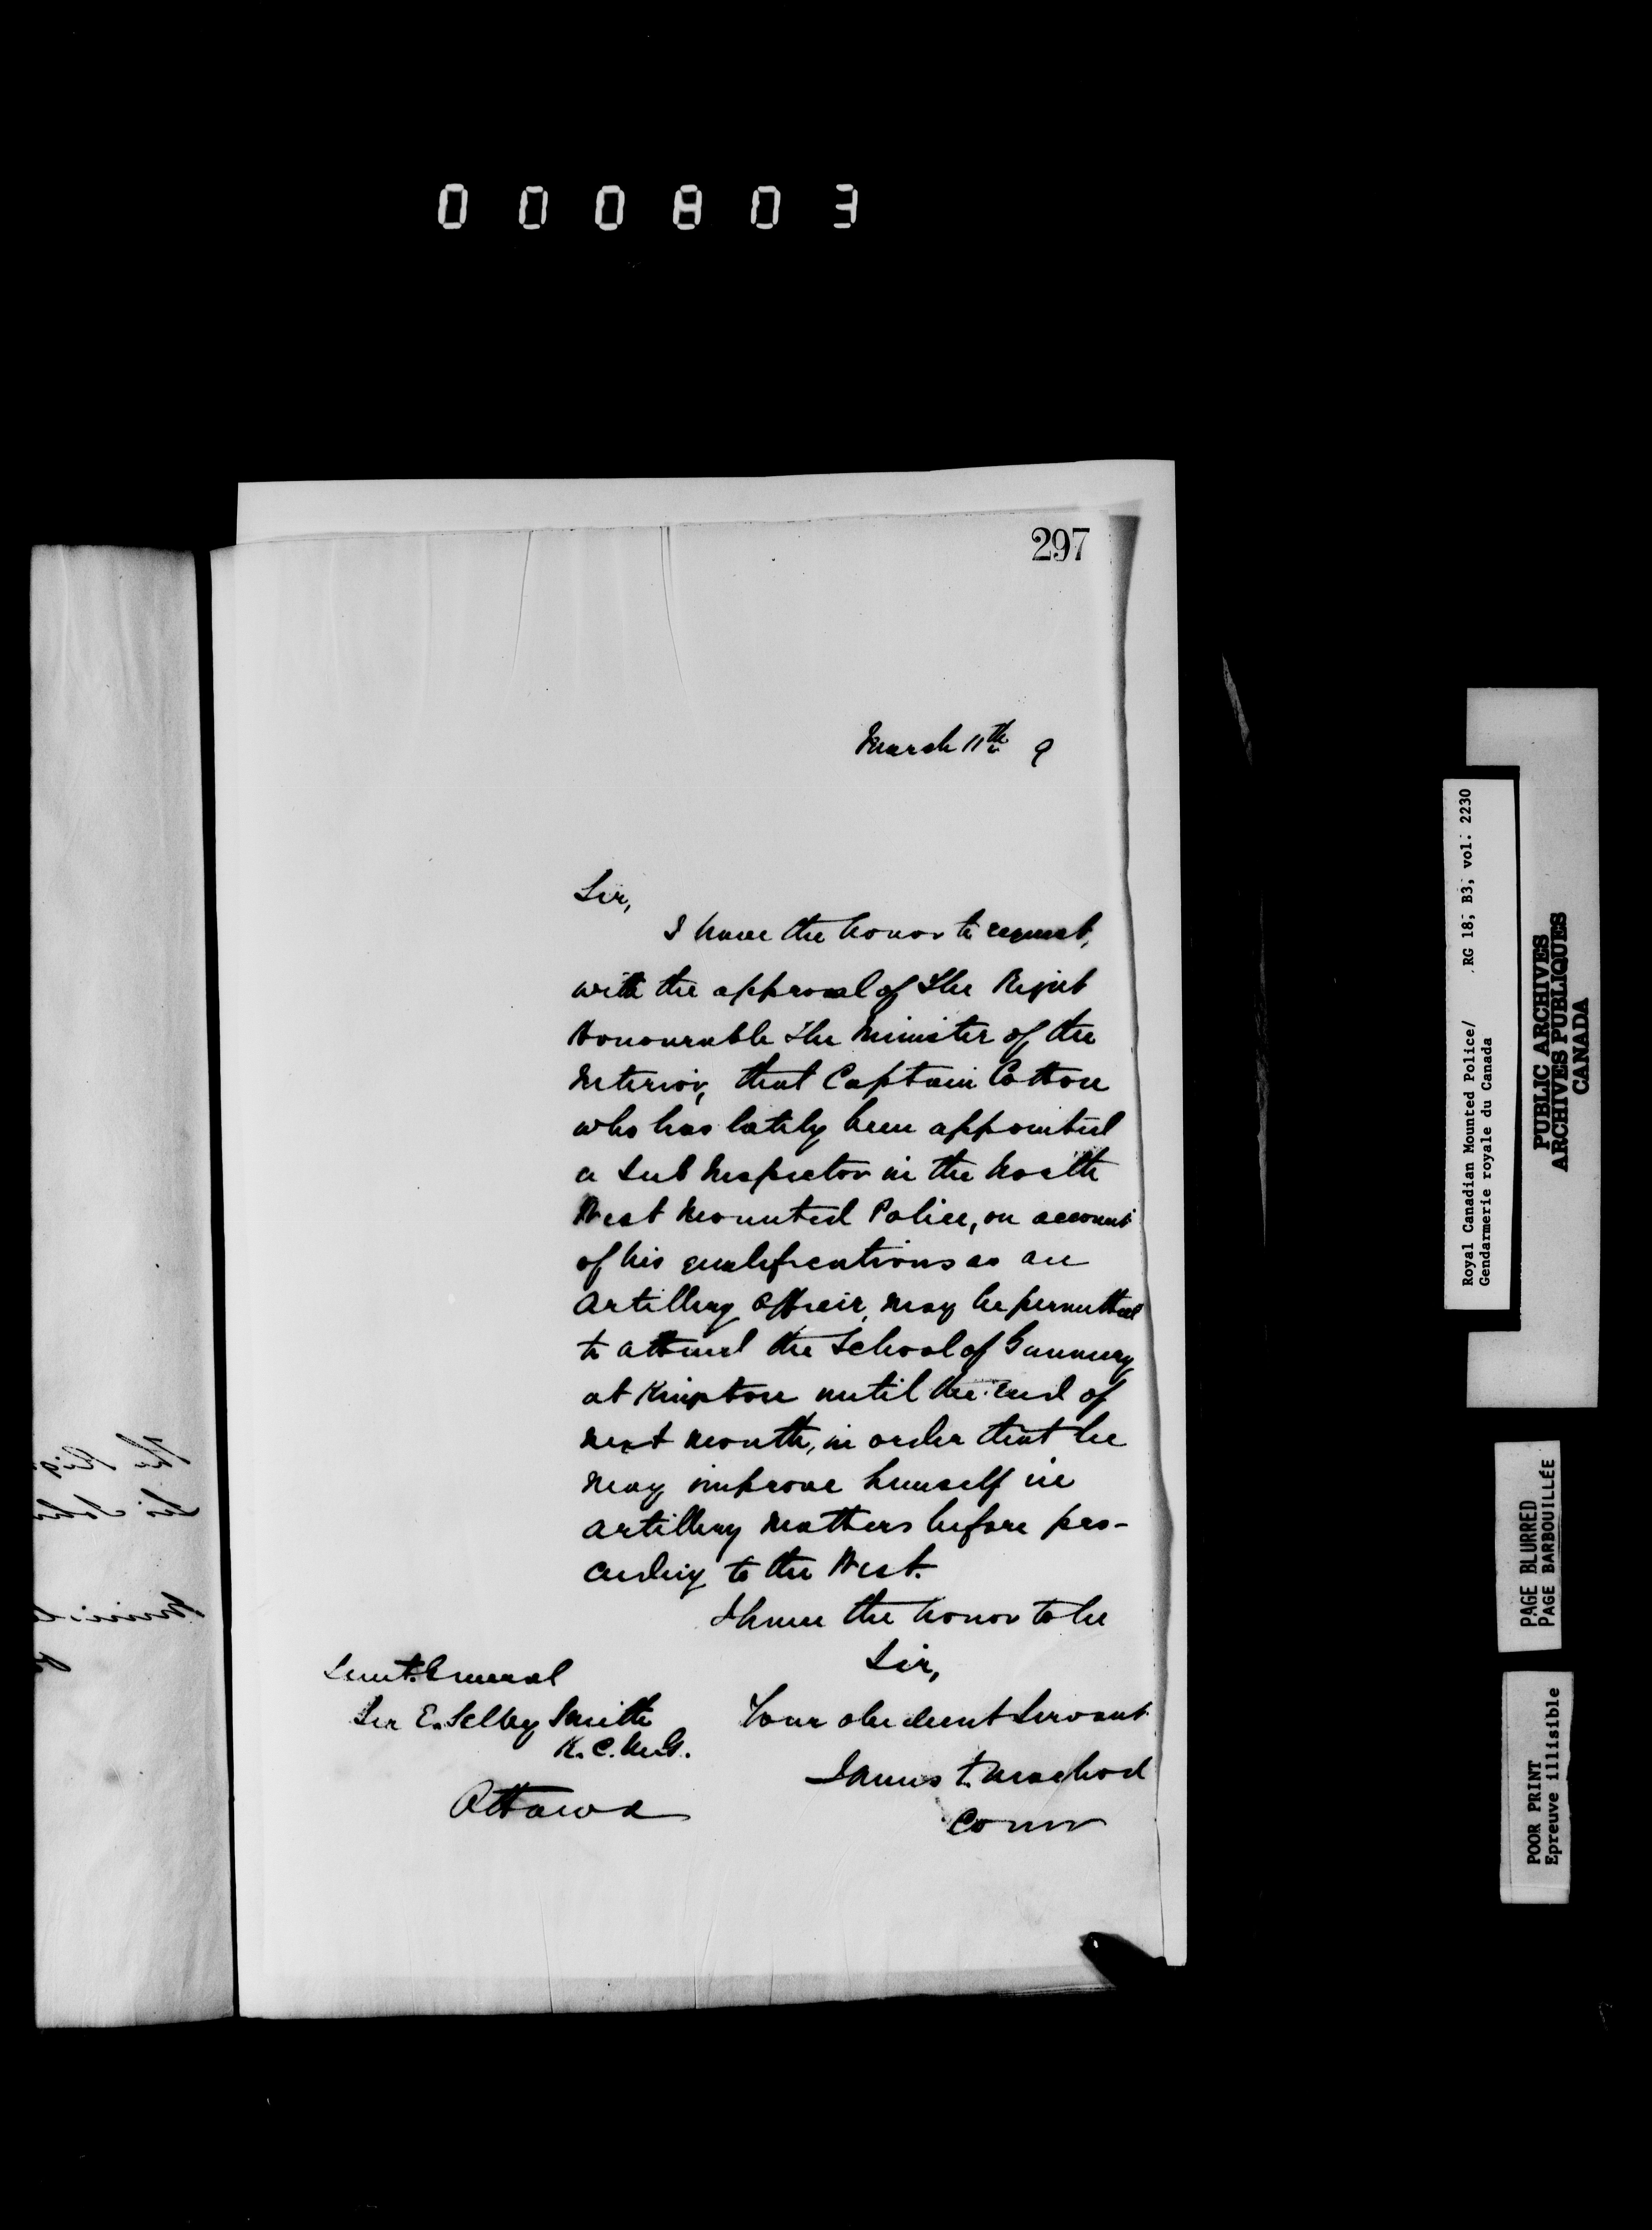 000803
297
March 11th 9
Sir,
I have the honor to request,
with the approval of The Right
Honourable The Minister of the
Interior, that Captain Cotton
who has lately been appointed
a Sub Inspector in the North
West Mounted Police, on account
of his qualifications as an
Artillery Officer, may be permitted
to attend the School of Gunnery
at Kingston until the end of
next month, in order that he
may improve himself in
artillery matters before pro-
ceeding to the West.
I have the honor to be
Sir,
Your obedient Servant
James F. Macleod
Comr
Lieut. General
Sir E. Selby Smith
K.C.M.G.
Ottawa
The Rig
Sir John
Royal Canadian Mounted Police/ RG 18, B3, vol. 2230
Gendarmerie royale du Canada
PUBLIC ARCHIVES
ARCHIVES PUBLIQUES
CANADA
PAGE BLURRED
PAGE BARBOUILLÉE
POOR PRINT
Epreuve illisible